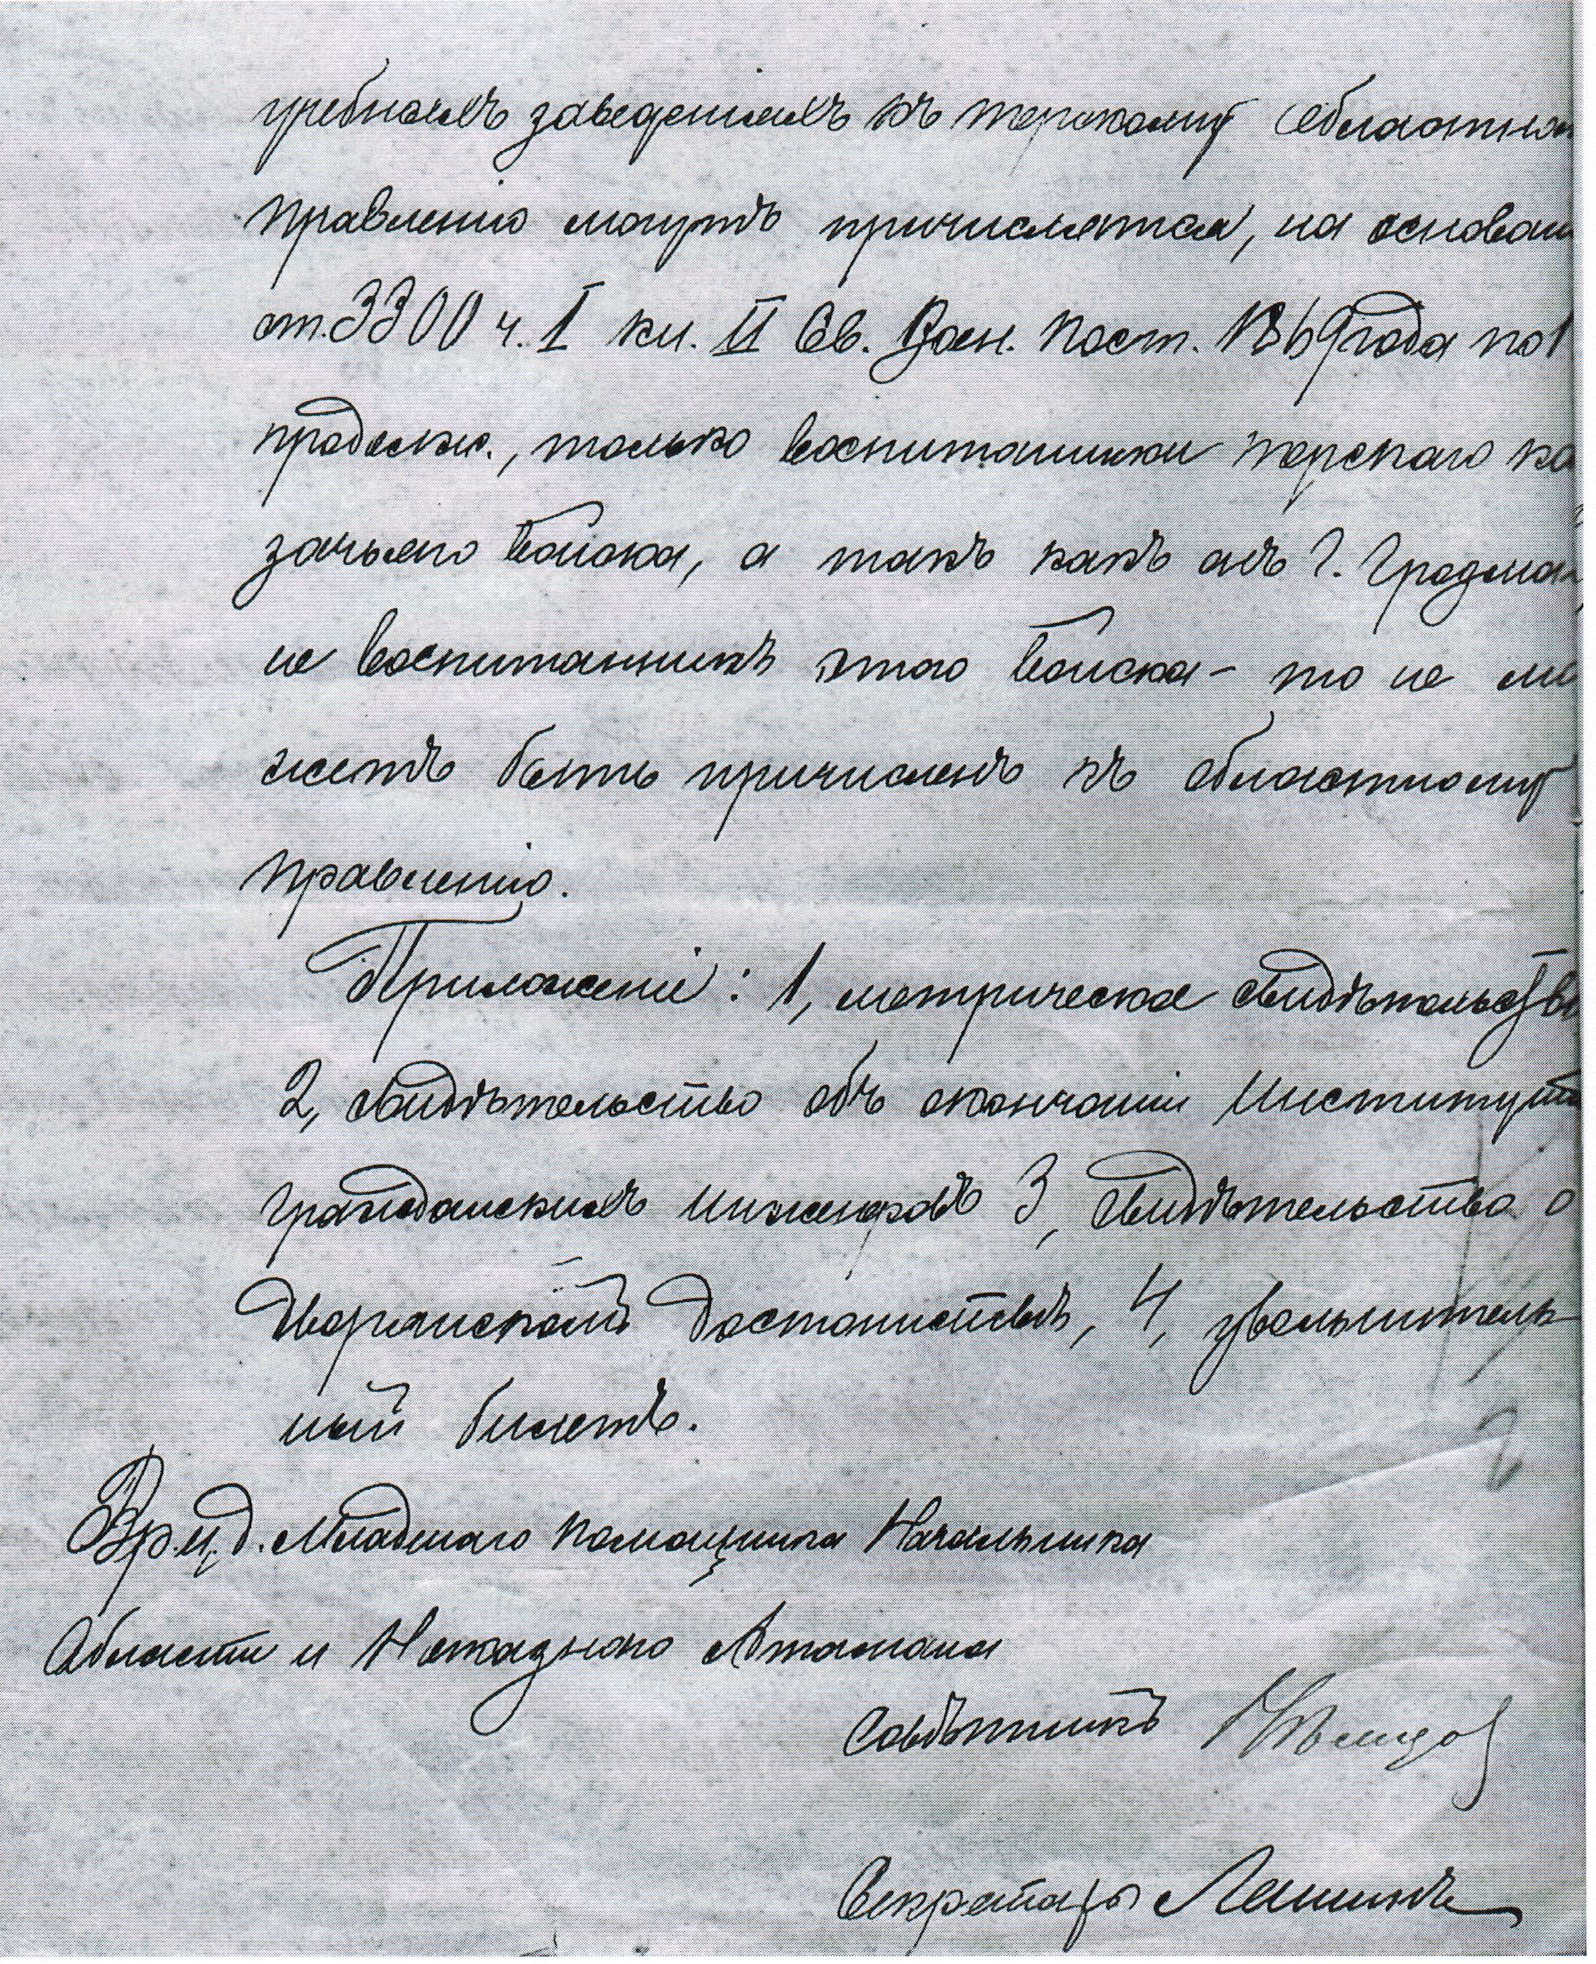 учебнымъ заведеніямъ къ терскому областно
правленію могутъ причислятся, на основан
ст. 3300 ч. I кн. II Св. Воен. Пост. 1869 года по 1
продолж., только воспитанники терскаго ка
зачьяго войска, а такъ какъ онъ Г. Гродман
не воспитанникъ этаго войска - то не мо
жетъ быть причисленъ къ областному
правленію.
Приложеніе: 1, метрическое свидѣтельство
2, свидѣтельство объ окончаніи Института
гражданскихъ инженеровъ 3, свидѣтельство о
дворянскомъ достоинствѣ, 4, увольнитель-
ный билетъ.
Вр. и. д. Младшаго помощника Начальника
Области и Наказнаго Атамана
Совѣтникъ
Секретарь